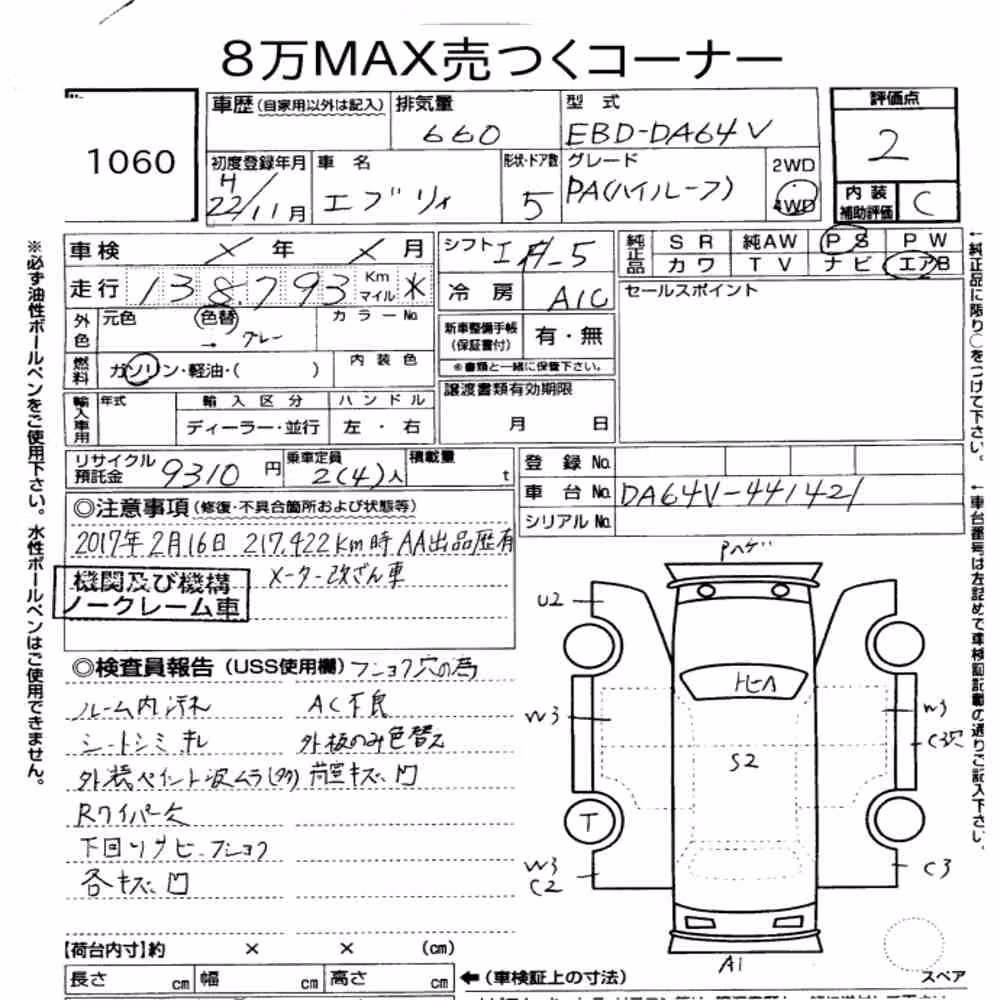 8万MAX売つくコーナー
1060
車歴(自家用以外は記入) 排気量 660 型 式 EBD-DA64V
評価点 2
初度登録年月 H22/11月 車 名 エブリィ 形状・ドア数 5 グレード PA(ハイルーフ) 2WD 4WD
内装補助評価 C
車検 × 年 × 月 シフト F-5
純正品 SR 純AW PS PW
カワ TV ナビ エアB
走行 138,793 Km マイル *
冷房 A/C
セールスポイント
外色 元色 色替 → グレー カラーNo.
新車整備手帳(保証書付) 有・無
※書類と一緒に保管下さい。
燃料 ガソリン・軽油・( ) 内装色
譲渡書類有効期限 月 日
輸入車用 年式 輸入区分 ハンドル
ディーラー・並行 左・右
リサイクル預託金 9310 円 乗車定員 2(4)人 積載量 t
登録No.
車台No. DA64V-441421
シリアルNo.
◎注意事項(修復・不具合箇所および状態等)
2017年2月16日 217,422Km時 AA出品歴有
メーター改ざん車
機関及び機構
ノークレーム車
◎検査員報告(USS使用欄) フショク穴の為
ルーム内汚れ AC不良
シートシミキレ 外板のみ色替え
外装ペイント波ムラ(タク) 荷室キズ凹
Rワイパー欠
下回りサビ・フショク
各キズ凹
Pハゲ
U2
トビA
W3
W3
C3穴
S2
T
W3
C2
C3
A1
スペア
【荷台内寸】約 × × (cm)
長さ cm 幅 cm 高さ cm ←(車検証上の寸法)
※必ず油性ボールペンをご使用下さい。水性ボールペンはご使用できません。
←純正品に限り○をつけて下さい。
←車台番号は左詰めで車検証記載の通りご記入下さい。